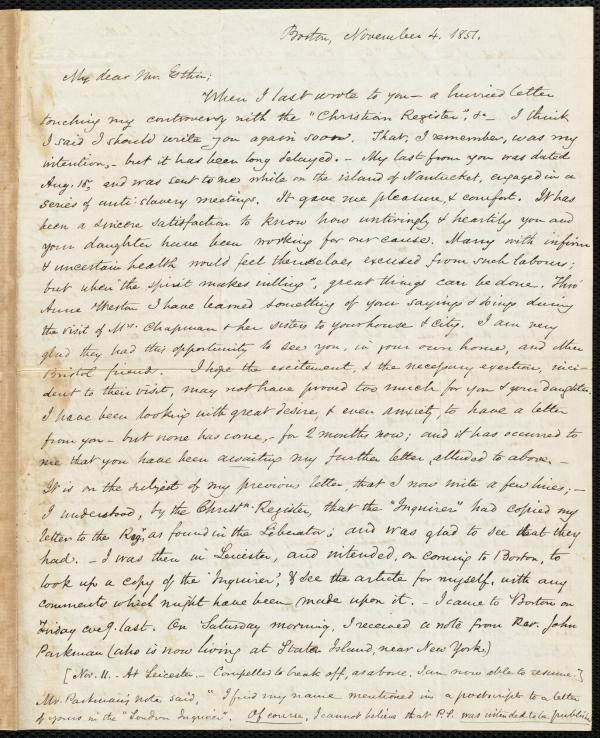 Boston, November 4. 1851.
My dear Mr. Estlin;
When I last wrote to you — a hurried letter
touching my controversy with the "Christian Register", &c — I think
I said I should write you again soon. That, I remember, was my
intention, — but it has been long delayed. — My last from you was dated
Aug. 15, and was sent to me while on the island of Nantucket, engaged in a
series of anti-slavery meetings. It gave me pleasure, & comfort. It has
been a sincere satisfaction to know how untiringly & heartily you and
your daughter have been working for our cause. Many with infirm
& uncertain health would feel themselves excused from such labours;
but when "the spirit makes willing", great things can be done. Thro'
Anne Weston I have learned something of your sayings & doings during
the visit of Mrs. Chapman & her sisters to your house & city. I am very
glad they had this opportunity to see you, in your own home, and other
Bristol friends. I hope the excitement, & the necessary exertion, inci-
dent to their visit, may not have proved too much for you & your daughter.
I have been looking with great desire, & even anxiety, to have a letter
from you — but none has come, — for 2 months now; and it has occurred to
me that you have been awaiting my further letter, alluded to above. —
It is on the subject of my previous letter, that I now write a few lines; —
I understood, by the Christn. Register, that the "Inquirer" had copied my
letter to the Regr., as found in the Liberator; and was glad to see that they
had. — I was then in Leicester, and intended, on coming to Boston, to
look up a copy of the 'Inquirer', & see the article for myself, with any
comments which might have been made upon it. — I came to Boston on
Friday eveg. last. On Saturday morning, I received a note from Rev. John
Parkman (who is now living at Staten Island, near New York.)
[Nov. 11. — At Leicester — Compelled to break off, as above, I am now able to resume.]
Mr. Parkman's note said, "I find my name mentioned in a postscript to a letter
of yours in the "London Inquirer". Of course, I cannot believe that P.S. was intended to be publish